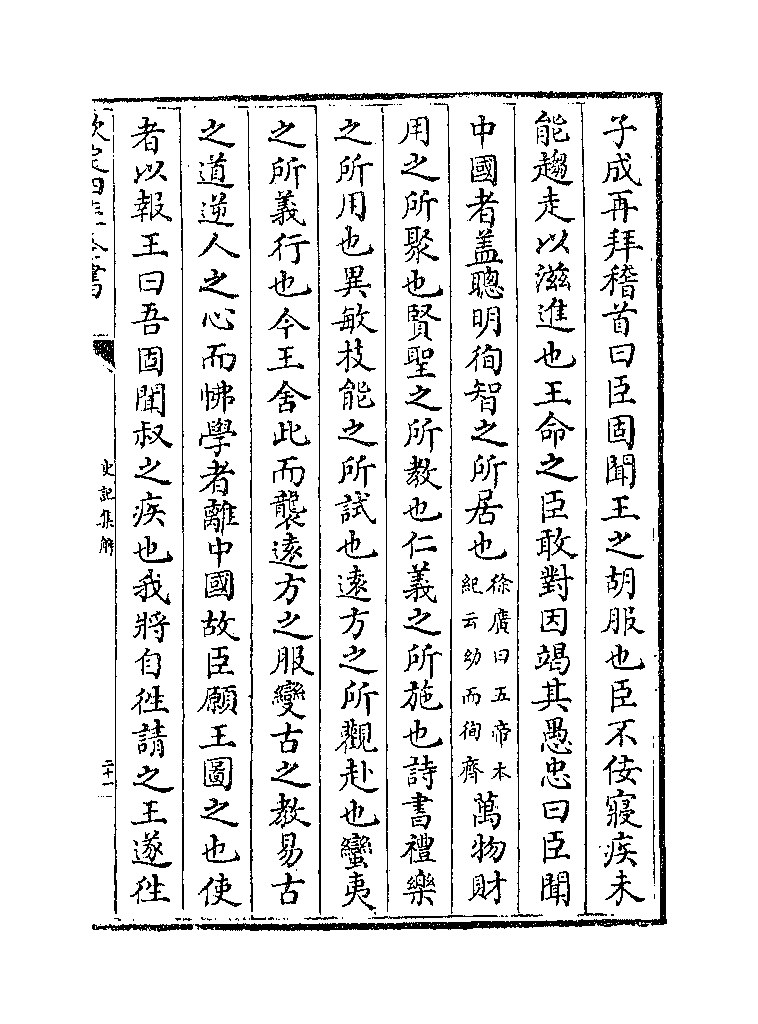 子成再拜稽首曰臣固聞王之胡服也臣不佞寢疾未
能趨走以滋進也王命之臣敢對因竭其愚忠曰臣聞
中國者盖聰明徇智之所居也徐廣曰五帝本紀云幼而徇齊萬物財
用之所聚也賢聖之所教也仁義之所施也詩書禮樂
之所用也異敏技能之所試也逺方之所觀赴也蠻夷
之所義行也今王舍此而襲逺方之服變古之教易古
之道逆人之心而怫學者離中國故臣願王圖之也使
者以報王曰吾固聞叔之疾也我將自徃請之王遂徃
欽定四庫全書
史記集解
二十一